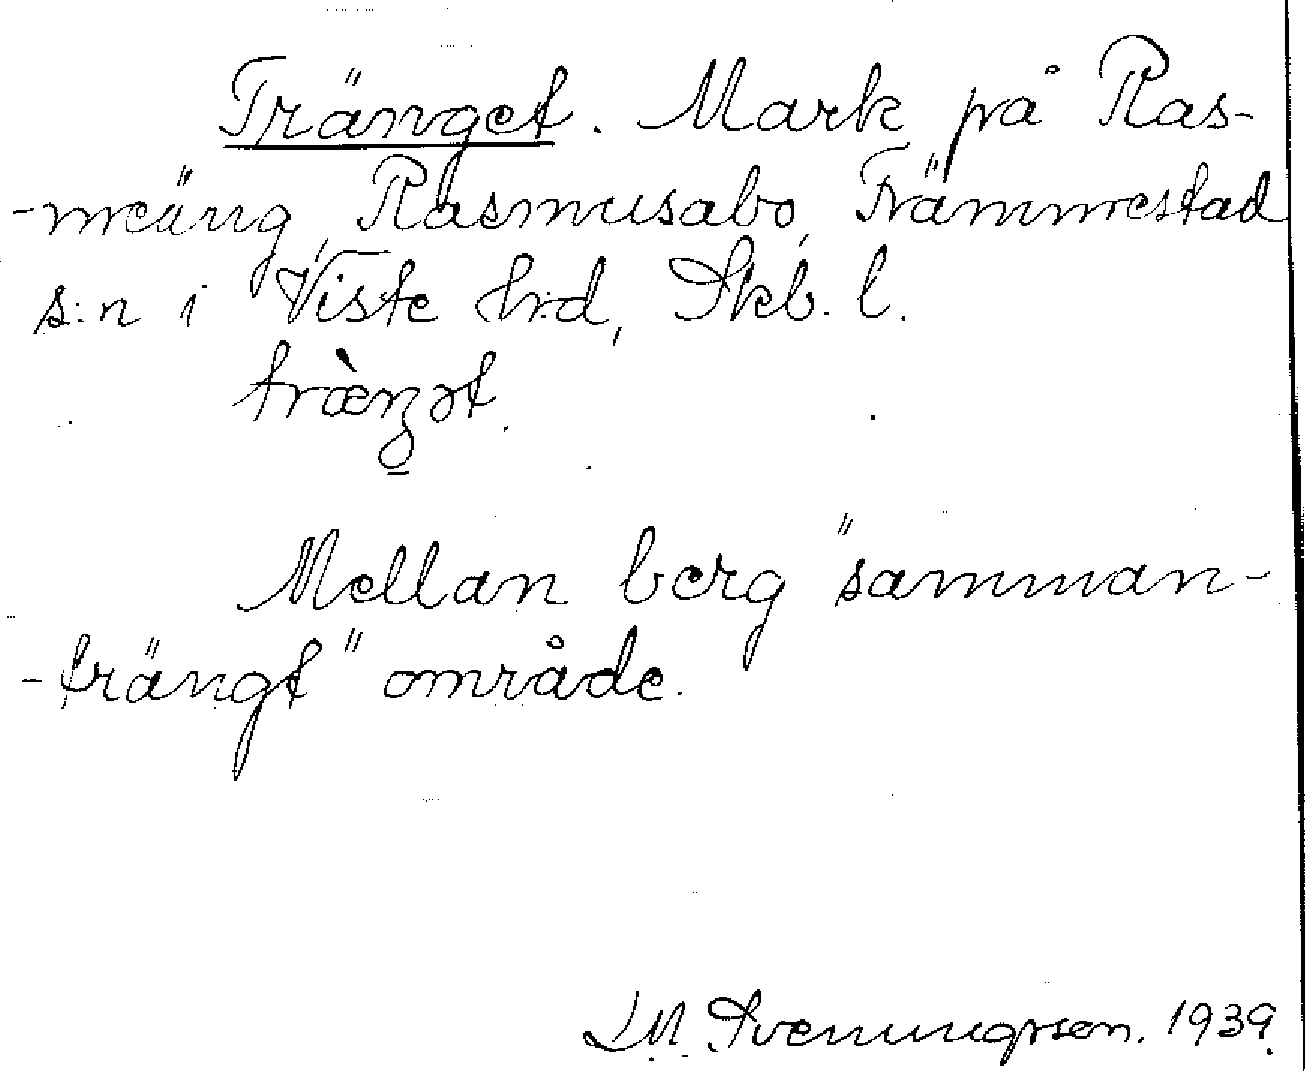 Tränget. Mark på Ras-
-meäng, Rasmusabo, Främmestad
s:n i Viste hrd, Skb. l.
træ̀ŋət.
Mellan berg "samman-
-trängt" område.
D.M. Sveningsson. 1939.